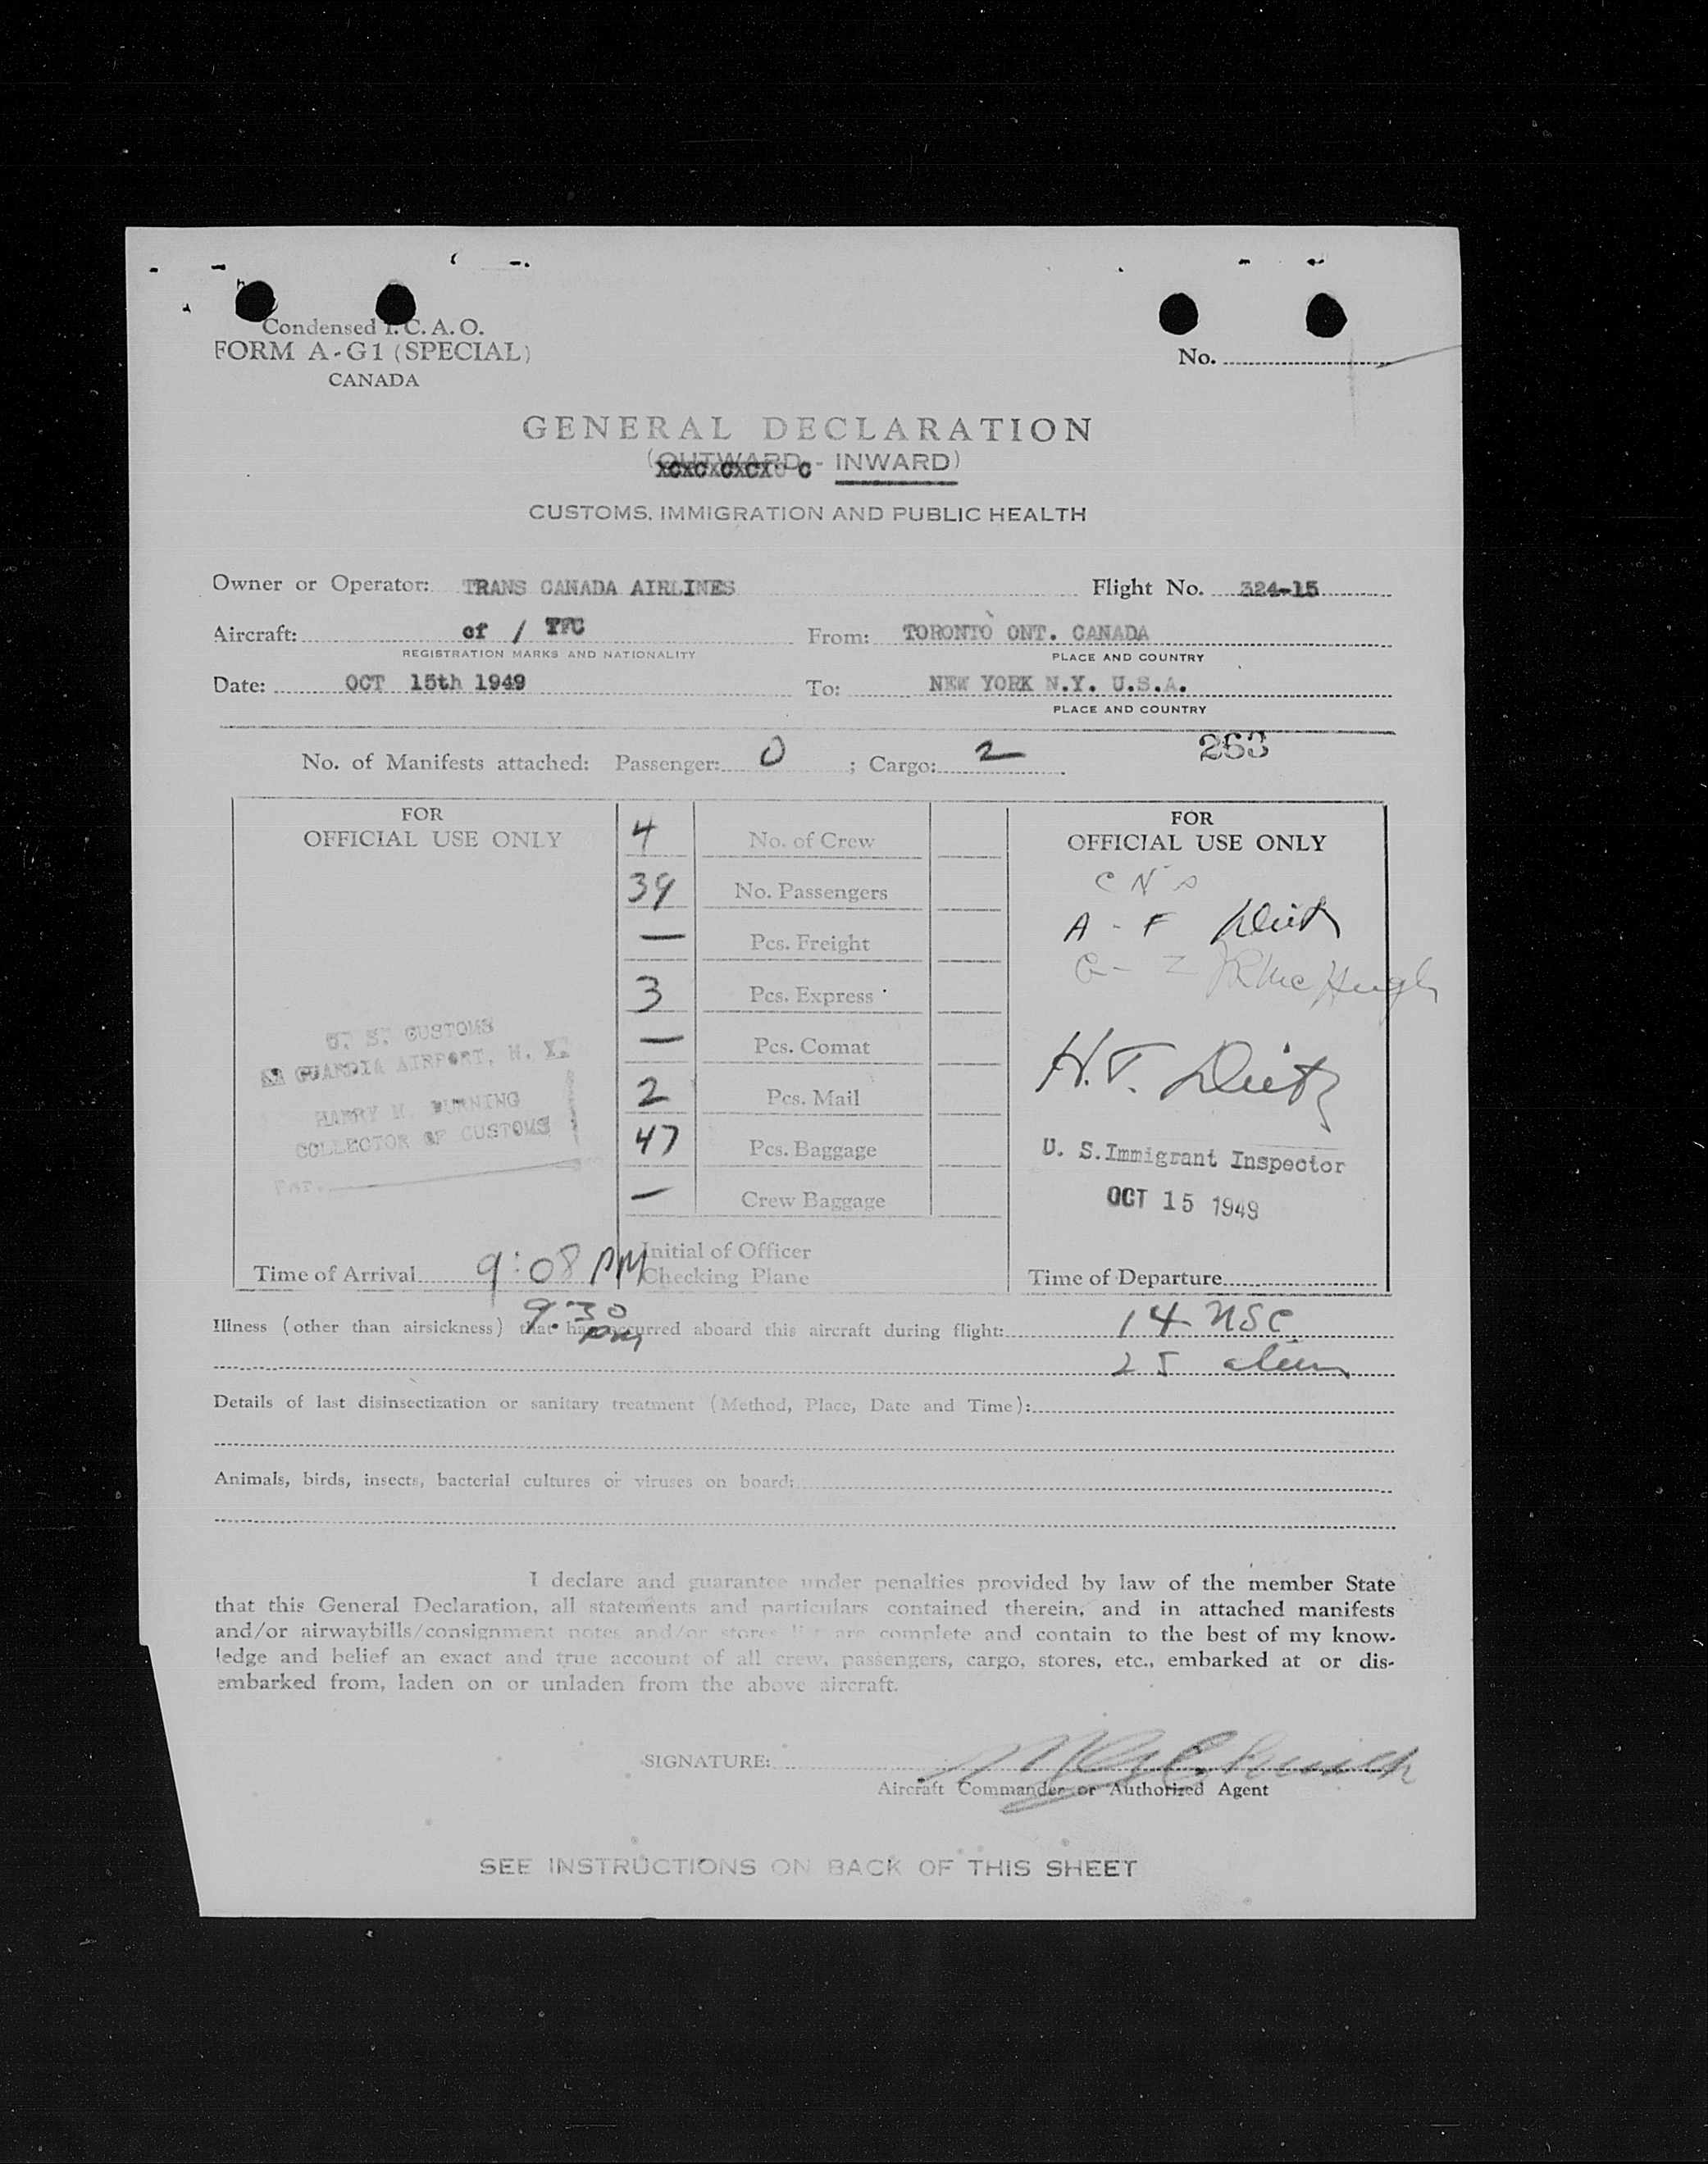 Condensed I. C. A. O.
FORM A-G1 (SPECIAL)
CANADA
No.
GENERAL DECLARATION
(OUTWARD - INWARD)
CUSTOMS, IMMIGRATION AND PUBLIC HEALTH
Owner or Operator: TRANS CANADA AIRLINES Flight No. 324-15
Aircraft: cf / TFC From: TORONTO ONT. CANADA
REGISTRATION MARKS AND NATIONALITY PLACE AND COUNTRY
Date: OCT 15th 1949 To: NEW YORK N.Y. U.S.A.
PLACE AND COUNTRY
263
No. of Manifests attached: Passenger: 0 ; Cargo: 2
FOR
OFFICIAL USE ONLY
U. S. CUSTOMS
LA GUARDIA AIRPORT, N. Y.
HARRY M. DURNING
COLLECTOR OF CUSTOMS
Per.
Time of Arrival 9:08 PM
9:30
pm
4 No. of Crew
39 No. Passengers
— Pcs. Freight
3 Pcs. Express
— Pcs. Comat
2 Pcs. Mail
47 Pcs. Baggage
— Crew Baggage
Initial of Officer
Checking Plane
FOR
OFFICIAL USE ONLY
A - F Dietz
G - Z McHugh
H.T. Dietz
U. S. Immigrant Inspector
OCT 15 1949
Time of Departure
Illness (other than airsickness) that has occurred aboard this aircraft during flight: 14 USC
25 alien
Details of last disinsectization or sanitary treatment (Method, Place, Date and Time):
Animals, birds, insects, bacterial cultures or viruses on board:
I declare and guarantee under penalties provided by law of the member State
that this General Declaration, all statements and particulars contained therein, and in attached manifests
and/or airwaybills/consignment notes and/or stores list are complete and contain to the best of my know-
ledge and belief an exact and true account of all crew, passengers, cargo, stores, etc., embarked at or dis-
embarked from, laden on or unladen from the above aircraft.
SIGNATURE:
Aircraft Commander or Authorized Agent
SEE INSTRUCTIONS ON BACK OF THIS SHEET